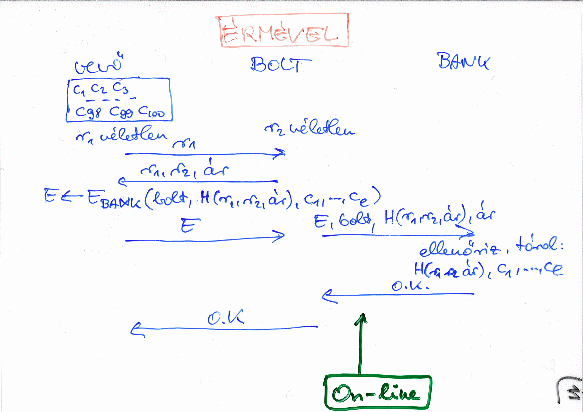 ÉRMÉVEL
VEVŐ BOLT BANK
C1 C2 C3
C98 C99 C100
r1 véletlen r2 véletlen
r1
r1, r2, ár
E ← E BANK (bolt, H(r1, r2, ár), C1, ..., Ce)
E E, bolt, H(r1, r2, ár), ár
ellenőriz, tárol:
H(r1, r2, ár), C1, ..., Ce
O.K.
O.K
On-line